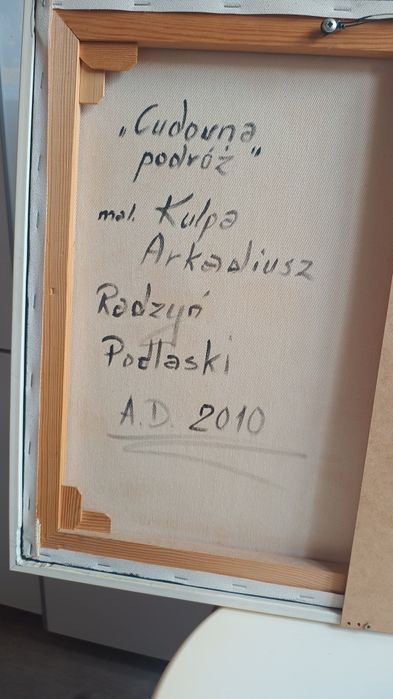 „Cudowna
podróż"
mal. Kulpa
Arkadiusz
Radzyń
Podlaski
A.D. 2010